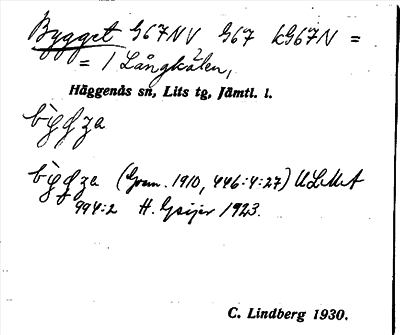 Bygget G67NV G67 LG67N =
= 1 Långkälen,
Häggenås sn, Lits tg, Jämtl. l.
(Gram. 1910, 446:4:27) ULMA
994:2 H. Geijer 1923.
C. Lindberg 1930.